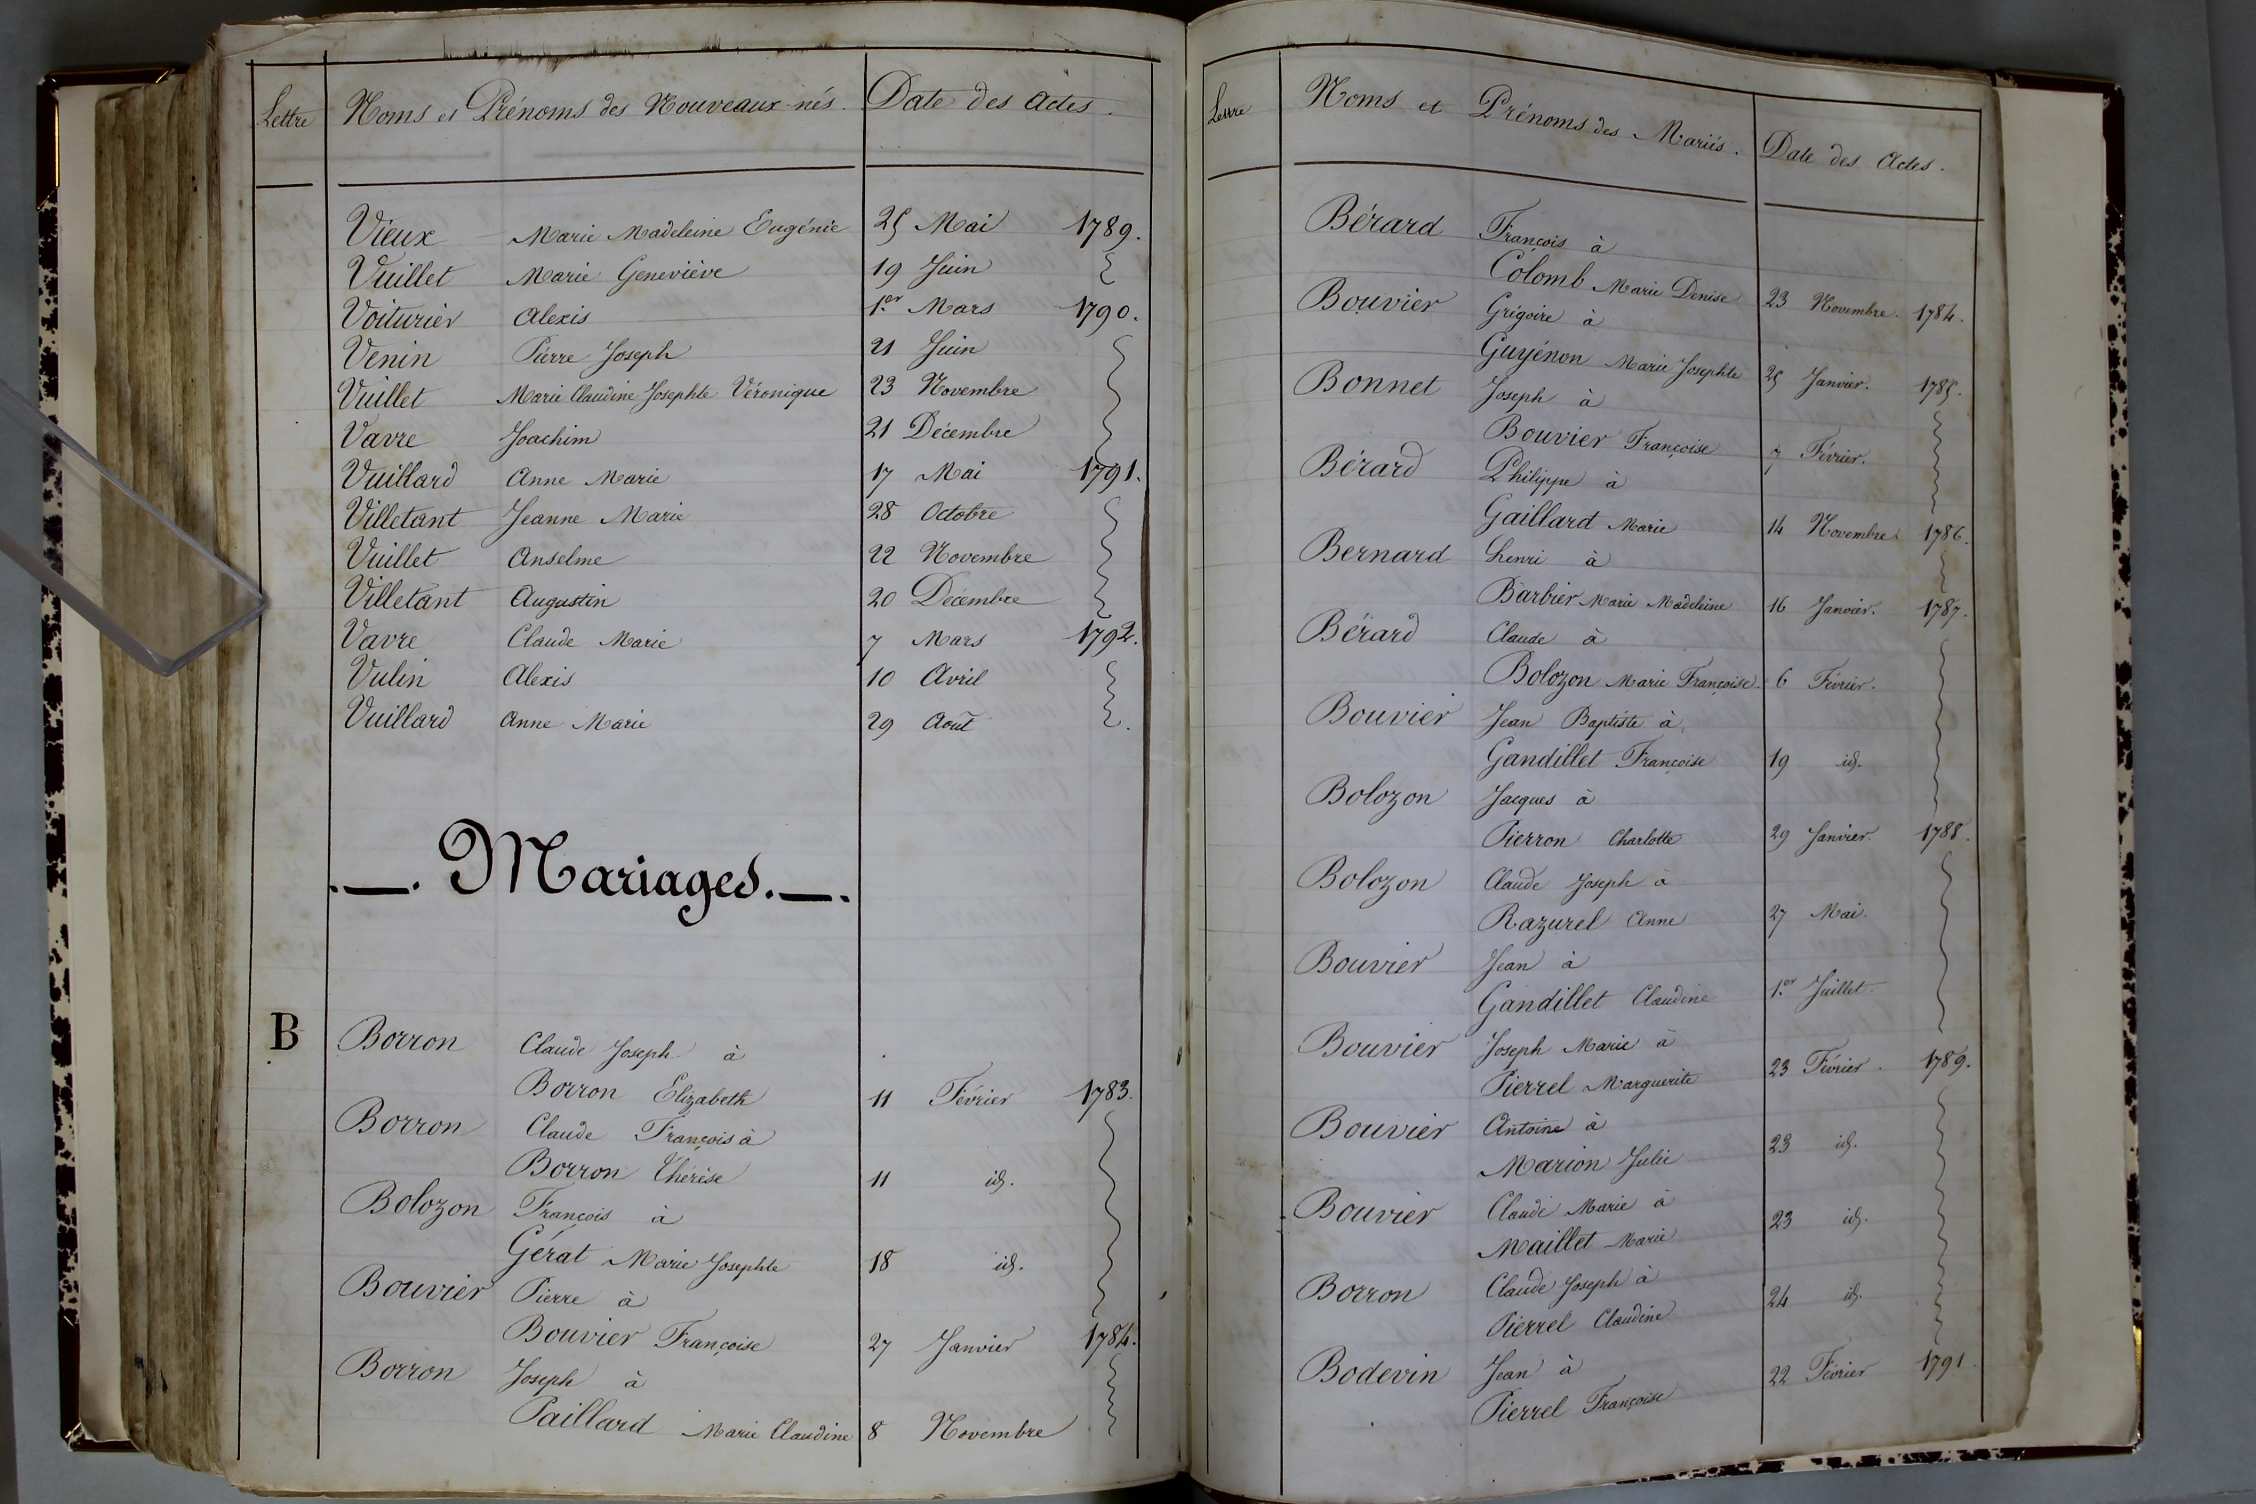 Lettre Noms et Prénoms des Nouveaux-nés. Date des Actes.
Vieux Marie Madeleine Eugénie 25 Mai 1789.
Vuillet Marie Geneviève 19 Juin
Voiturier Alexis 1.er Mars 1790.
Venin Pierre Joseph 21 Juin
Vuillet Marie Claudine Josephte Véronique 23 Novembre
Vavre Joachim 21 Décembre
Vuillard Anne Marie 17 Mai 1791.
Villetant Jeanne Marie 28 Octobre
Vuillet Anselme 22 Novembre
Villetant Augustin 20 Décembre
Vavre Claude Marie 7 Mars 1792.
Vulin Alexis 10 Avril
Vuillard Anne Marie 29 Août
.—. Mariages.—.
B Borron Claude Joseph à
Borron Elizabeth 11 Février 1783.
Borron Claude François à
Borron Thérèse 11 id.
Bolozon François à
Gérat Marie Josephte 18 id.
Bouvier Pierre à
Bouvier Françoise 27 Janvier 1784.
Borron Joseph à
Paillard Marie Claudine 8 Novembre
Lettre Noms et Prénoms des Mariés. Date des Actes.
Bérard François à
Colomb Marie Denise 23 Novembre. 1784.
Bouvier Grégoire à
Guyénon Marie Josephte 25 Janvier. 1785.
Bonnet Joseph à
Bouvier Françoise 7 Février.
Bérard Philippe à
Gaillard Marie 14 Novembre 1786.
Bernard henri à
Barbier Marie Madeleine 16 Janvier. 1787.
Bérard Claude à
Bolozon Marie Françoise. 6 Février.
Bouvier Jean Baptiste à
Gandillet Françoise 19 id.
Bolozon Jacques à
Pierron Charlotte 29 Janvier. 1788.
Bolozon Claude Joseph à
Razurel Anne 27 Mai.
Bouvier Jean à
Gandillet Claudine 1.er Juillet.
Bouvier Joseph Marie à
Pierrel Marguerite 23 Février. 1789.
Bouvier Antoine à
Marion Julie 23 id.
Bouvier Claude Marie à
Maillet Marie 23 id.
Borron Claude Joseph à
Pierrel Claudine 24 id.
Bodevin Jean à
Pierrel Françoise 22 Février 1791.